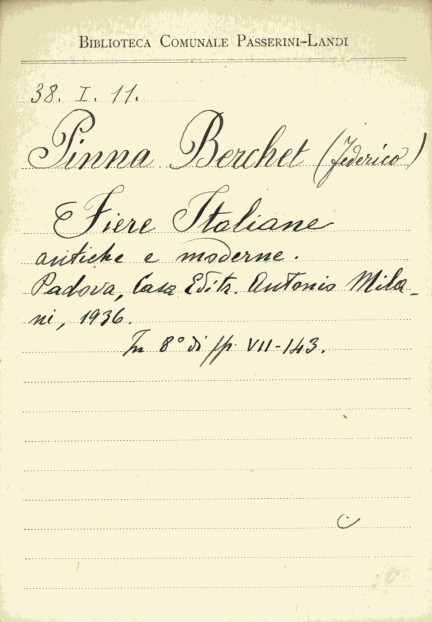 BIBLIOTECA COMUNALE PASSERINI-LANDI
38. I. 11.
Pinna Berchet (Federico)
Fiere Italiane
antiche e moderne.
Padova, Casa Editr. Antonio Mila-
ni, 1936.
In 8° di pp. VII-143.